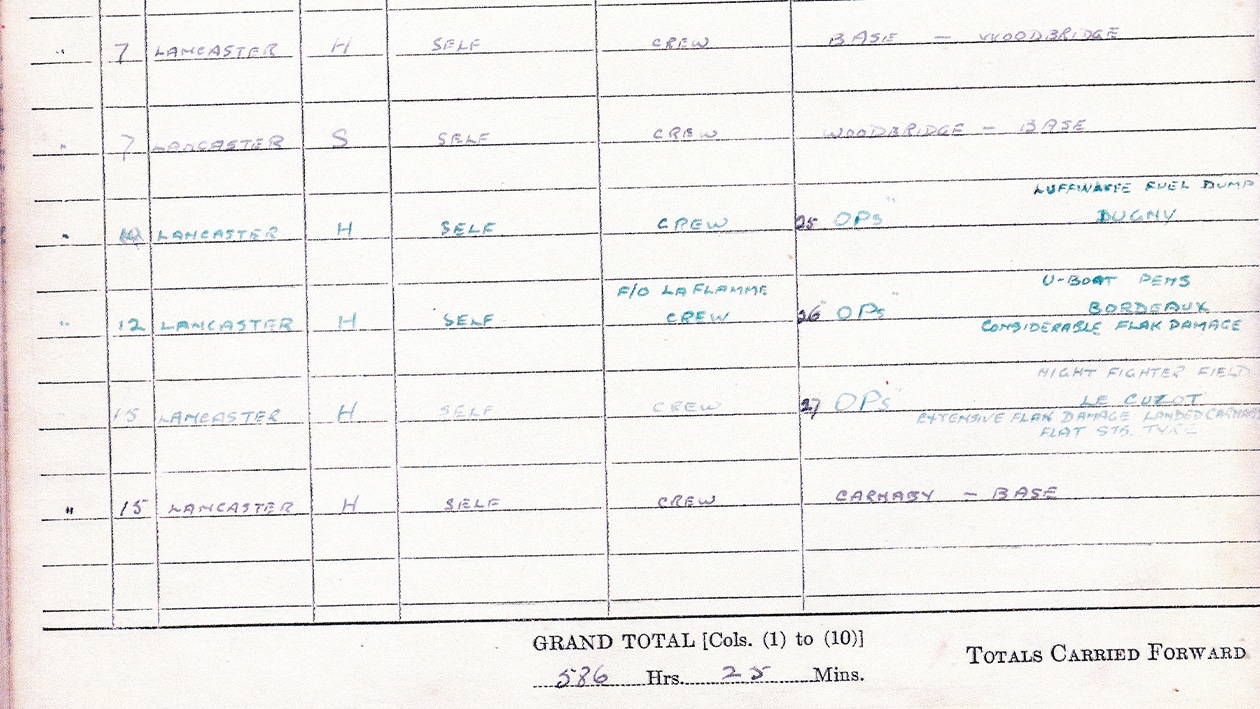 " 7 LANCASTER H SELF CREW BASE — WOODBRIDGE
" 7 LANCASTER S SELF CREW WOODBRIDGE — BASE
LUFFWAFFE FUEL DUMP
" 10 LANCASTER H SELF CREW 25 OPs" DUGNY
F/O LAFLAMME U-BOAT PENS
" 12 LANCASTER H SELF CREW 26" OPs" BORDEAUX
CONSIDERABLE FLAK DAMAGE
NIGHT FIGHTER FIELD
15 LANCASTER H SELF CREW 27 OPs" LE CUZOT
EXTENSIVE FLAK DAMAGE LANDED CARNABY
FLAT STB. TYRE
" 15 LANCASTER H SELF CREW CARNABY — BASE
GRAND TOTAL [Cols. (1) to (10)]
586 Hrs. 25 Mins.
TOTALS CARRIED FORWARD